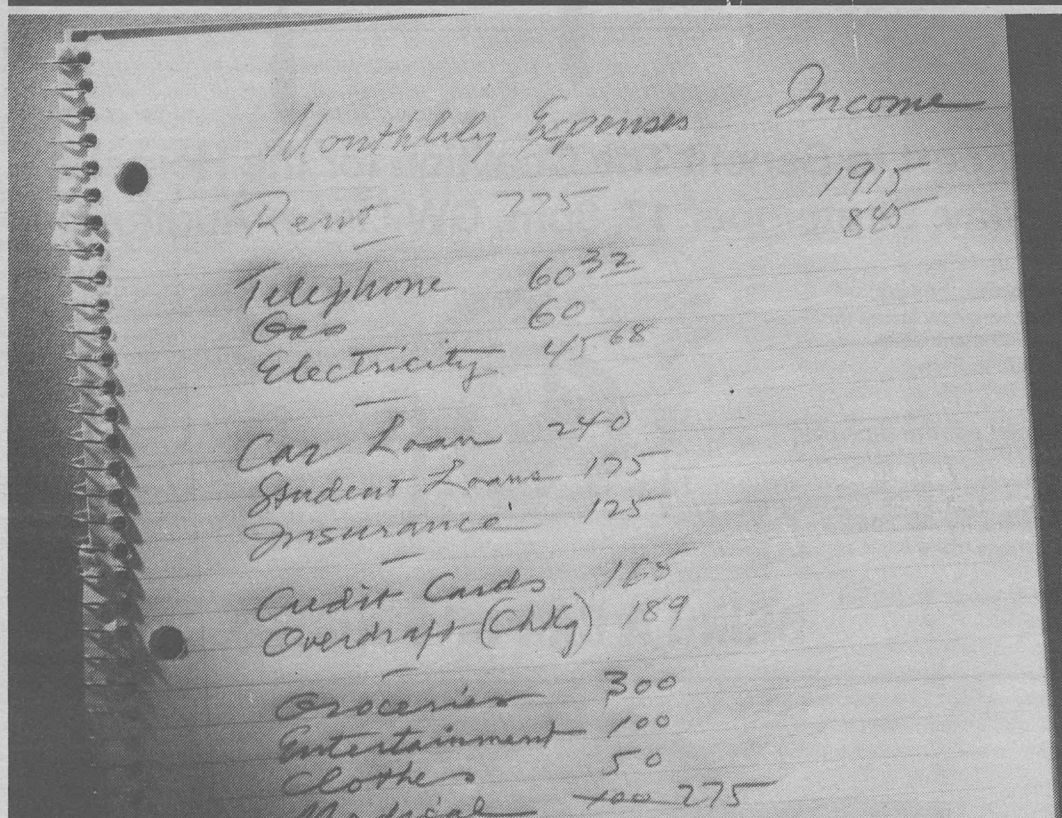 Monthlily Expenses Income
Rent 775 1915
845
Telephone 60 32
Gas 60
Electricity 45 68
Car Loan 240
Student Loans 175
Insurance 125
Credit Cards 165
Overdraft (Chkg) 189
Groceries 300
Entertainment 100
Clothes 50
Medical 100 275